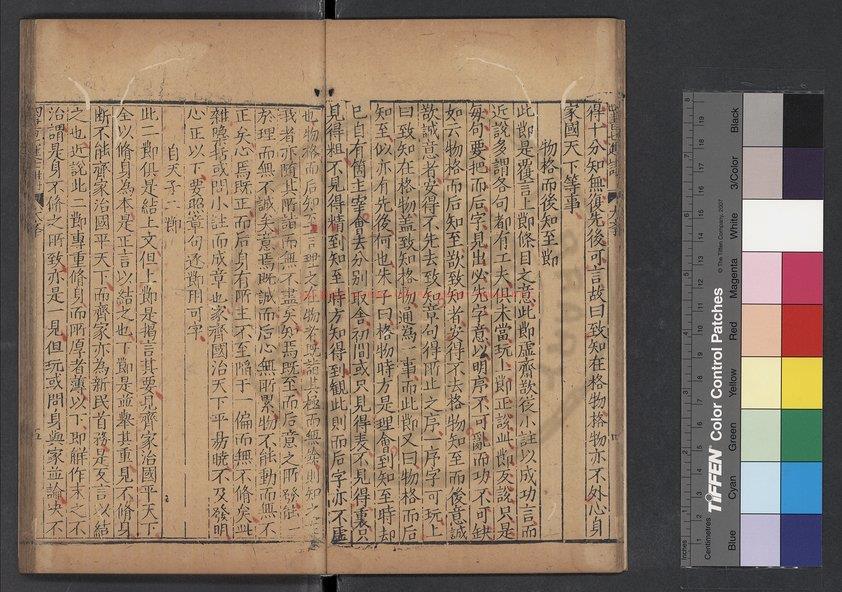 得十分知無復先後可言故曰致知在格物格物亦不外心身
家國天下等事
物格而後知至節
此節是覆言上節條目之意此節虛齊歎後小註以成功言而
近說多謂各句都有工夫但未當玩上節正說此節反說只是
每句要把而后字見出必先字意以明序不可亂而功不可缺
如云物格而后知至歎致知者安得不去格物知至而後意誠
歎誠意者安得不先去致知章句得所止之序一序字可玩上
曰致知在格物蓋致知格物通為一事而此節又曰物格而后
知至似亦有先後何也朱子曰格物時方是理會到知至時却
已自有箇主宰會去分別取舍初間或只見得表不見得裏只
見得粗不見得精到知至時方知得到觀此則而后字亦不虛
也物格而后知至言理之在物者既詣其極而無餘則知之在
我者亦隨所詣而無不盡矣知焉既至而后意之所發能
於理而無不誠矣意焉既誠而后心無所累物不能動而無不
正矣心焉既正而后身有所主不至陷于一偏而無不脩矣此
雜見或問小註而成章也家齊國治天下平易曉不及發明
心正以下要照章句逐節用可字
自天子二節
此二節俱是結上文但上節是揭言其要見齊家治國平天下
全以脩身為本是正言以結之也下節是並舉其重見不脩身
斷不能齊家治國平天下而齊家亦為新民首務是反言以結
之也近說此二節專重脩身而所厚者薄以下即解作末之不
治謂是身不脩之所致亦是一見但玩或問身與家並論決不